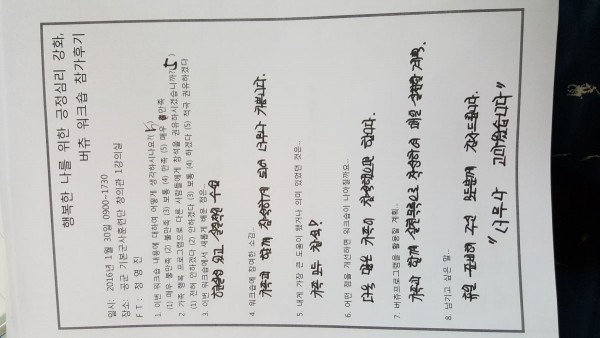 행복한 나를 위한 긍정심리 강화,
버츄 워크숍 참가후기
일시: 2016년 1월 30일 0900~1730
장소: 공군 기본군사훈련단 창의관 1강의실
FT: 정영진
1. 이번 워크숍 내용에 대하여 어떻게 생각하시나요?( )
(1) 매우 불만족 (2) 불만족 (3) 보통 (4) 만족 (5) 매우 만족
2. 가족 행복 프로그램으로 다른 사람들에게 참석을 권유하시겠습니까?(5)
(1) 전혀 안하겠다 (2) 안하겠다 (3) 보통 (4) 하겠다 (5) 적극 권유하겠다
3. 이번 워크숍에서 새롭게 배운 점은...
현실성 있고 실용적인 수업
4. 워크숍에 참여한 소감...
가족과 함께 참석하게 되어 너무나 기쁩니다.
5. 내게 가장 큰 도움이 됐거나 의미 있었던 것은...
가족 모두 참석?
6. 어떤 점을 개선하면 워크숍이 나아질까요...
더욱 많은 가족이 참석했으면 합니다.
7. 버츄프로그램을 활용할 계획...
가족과 함께 실천목록으로 작성하여 매일 실천할 계획.
8. 남기고 싶은 말...
준비해 주신 모든분께 감사드립니다.
"너무나 고마웠습니다"